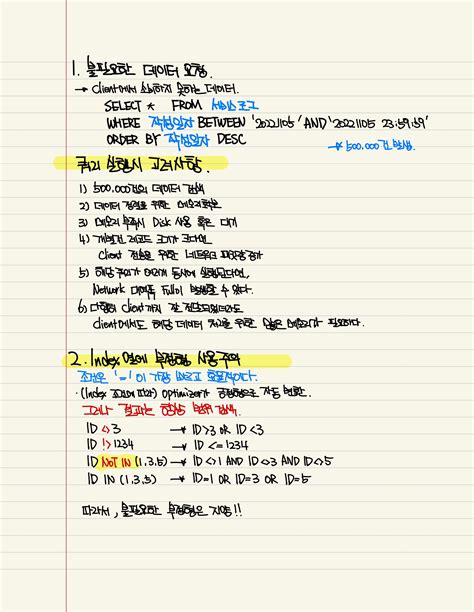 1. 불필요한 데이터 요청.
→ Client에서 소화하지 못하는 데이터.
SELECT * FROM 서비스로그
WHERE 작성일자 BETWEEN '20221105' AND '20221105 23:59:59'
ORDER BY 작성일자 DESC
→ 500.000건 발생.
쿼리 실행시 고려사항.
1) 500.000건의 데이터 검색
2) 데이터 정렬을 위한 메모리확보
3) 메모리 부족시 Disk 사용 혹은 대기
4) 개별건 레코드 크기가 크다면
Client 전송을 위한 네트워크 패킷량 증가
5) 해당 쿼리가 여러개 동시에 실행된다면,
Network 대역폭 Full이 발생할 수 있다.
6) 다행히 Client까지 잘 전달되었더라도
Client에서도 해당 데이터 처리를 위한 많은 메모리가 필요하다.
2. Index열에 부정형 사용주의
조건은 '='이 가장 빠르고 효율적이다.
·(Index 조건에 따라) Optimizer가 긍정형으로 자동 변환.
그러나 결과는 항상 범위 검색.
ID <> 3 → ID > 3 OR ID < 3
ID !> 1234 → ID <= 1234
ID NOT IN (1.3.5) → ID <> 1 AND ID <> 3 AND ID <> 5
ID IN (1.3.5) → ID=1 OR ID=3 OR ID=5
따라서, 불필요한 부정형은 지양!!